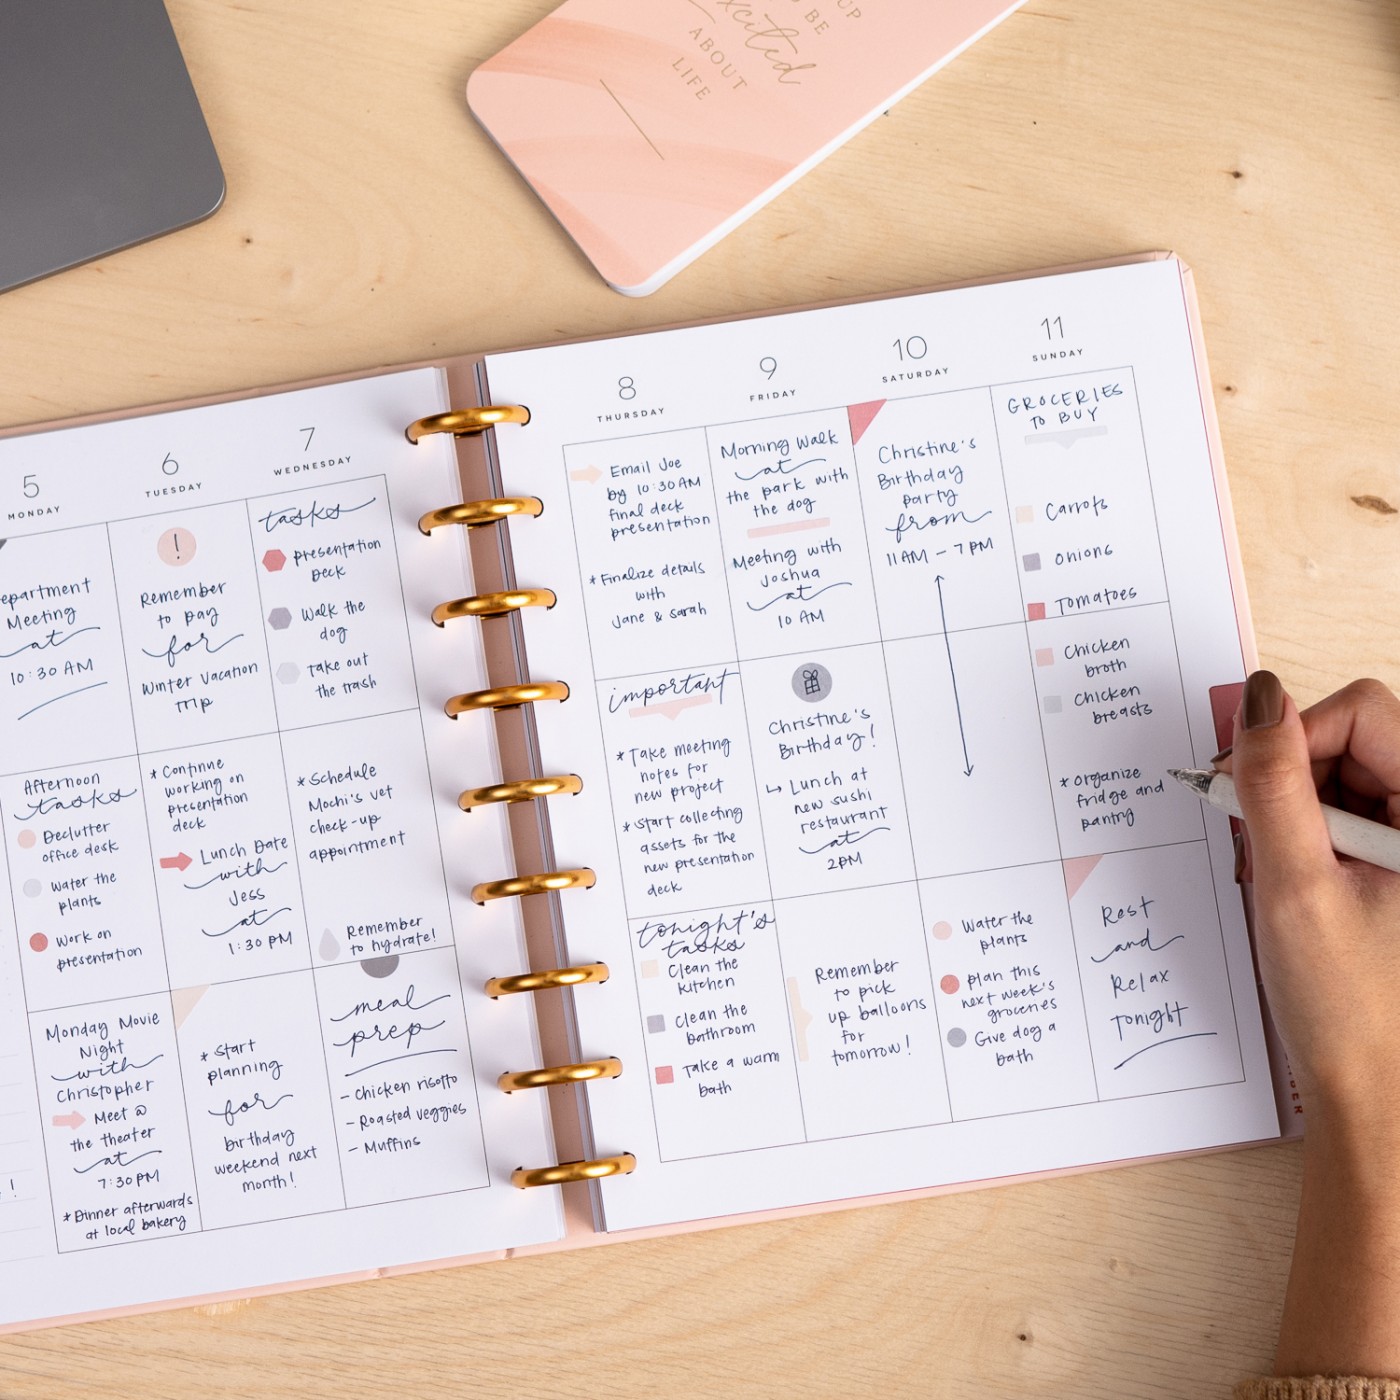 UP
TO BE
excited
ABOUT
LIFE
5
MONDAY
epartment
Meeting
at
10:30 AM
Afternoon
tasks
Declutter
office desk
Water the
plants
Work on
presentation
Monday Movie
Night
with
Christopher
Meet @
the theater
at
7:30 PM
* Dinner afterwards
at local bakery
6
TUESDAY
!
Remember
to pay
for
Winter vacation
trip
* Continue
working on
presentation
deck
Lunch Date
with
Jess
at
1:30 PM
* Start
planning
for
birthday
weekend next
month!
7
WEDNESDAY
tasks
presentation
Deck
Walk the
dog
Take out
the trash
* Schedule
Mochi's vet
check-up
appointment
Remember
to hydrate!
meal
prep
- Chicken risotto
- Roasted veggies
- Muffins
8
THURSDAY
Email Joe
by 10:30AM
final deck
presentation
* Finalize details
with
Jane & Sarah
important
* Take meeting
notes for
new project
* Start collecting
assets for the
new presentation
deck
tonight's
tasks
Clean the
kitchen
Clean the
bathroom
Take a warm
bath
9
FRIDAY
Morning Walk
at
the park with
the dog
Meeting with
Joshua
at
10 AM
Christine's
Birthday!
Lunch at
new sushi
restaurant
at
2PM
Remember
to pick
up balloons
for
tomorrow!
10
SATURDAY
Christine's
Birthday
party
from
11AM - 7PM
Water the
plants
plan this
next week's
groceries
Give dog a
bath
11
SUNDAY
GROCERIES
TO BUY
Carrots
Onions
Tomatoes
Chicken
broth
Chicken
breasts
* organize
fridge and
pantry
Rest
and
Relax
Tonight